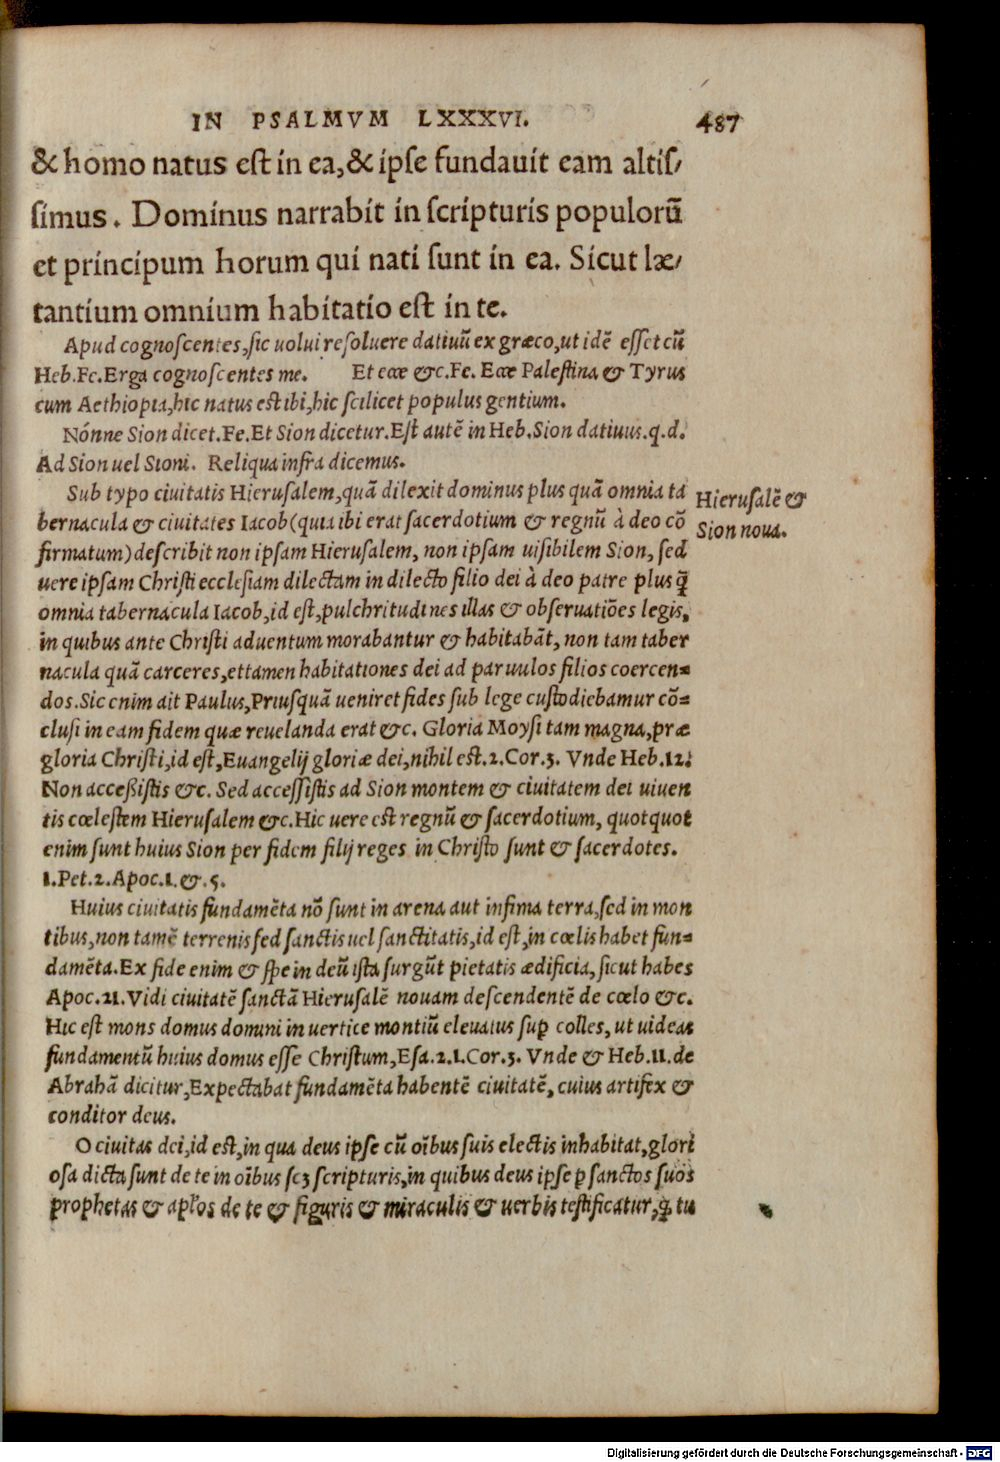 IN PSALMVM LXXXVI. 487
& homo natus est in ea, & ipse fundauit eam altis/
simus. Dominus narrabit in scripturis populorũ
et principum horum qui nati sunt in ea. Sicut læ/
tantium omnium habitatio est in te.
Apud cognoscentes, sic uolui resoluere datiuũ ex græco, ut idẽ esset cũ
Heb. Fe. Erga cognoscentes me. Et ecce &c. Fe. Ecce Palestina & Tyrus
cum Aethiopia, hic natus est ibi, hic scilicet populus gentium.
Nónne Sion dicet. Fe. Et Sion dicetur. Est autẽ in Heb. Sion datiuus. q. d.
Ad Sion uel Sioni. Reliqua infra dicemus.
Sub typo ciuitatis Hierusalem, quã dilexit dominus plus quã omnia ta
bernacula & ciuitates Iacob (quia ibi erat sacerdotium & regnũ à deo cõ
firmatum) describit non ipsam Hierusalem, non ipsam uisibilem Sion, sed
uere ipsam Christi ecclesiam dilectam in dilecto filio dei à deo patre plus q̃
omnia tabernacula Iacob, id est, pulchritudines illas & obseruatiões legis,
in quibus ante Christi aduentum morabantur & habitabãt, non tam taber
nacula quã carceres, et tamen habitationes dei ad paruulos filios coercen=
dos. Sic enim ait Paulus, Priusquã ueniret fides sub lege custodiebamur cõ=
clusi in eam fidem quæ reuelanda erat &c. Gloria Moysi tam magna, præ
gloria Christi, id est, Euangelij gloriæ dei, nihil est. 2. Cor. 3. Vnde Heb. 12.
Non accessistis &c. Sed accessistis ad Sion montem & ciuitatem dei uiuen
tis cœlestem Hierusalem &c. Hic uere est regnũ & sacerdotium, quotquot
enim sunt huius Sion per fidem filij reges in Christo sunt & sacerdotes.
1. Pet. 2. Apoc. 1. &. 5.
Hierusalẽ &
Sion noua.
Huius ciuitatis fundamẽta nõ sunt in arena aut infima terra, sed in mon
tibus, non tamẽ terrenis sed sanctis uel sanctitatis, id est, in cœlis habet fun=
damẽta. Ex fide enim & spe in deũ ista surgũt pietatis ædificia, sicut habes
Apoc. 21. Vidi ciuitatẽ sanctã Hierusalẽ nouam descendentẽ de cœlo &c.
Hic est mons domus domini in uertice montiũ eleuatus sup̱ colles, ut uideas
fundamentũ huius domus esse Christum, Esa. 2. 1. Cor. 3. Vnde & Heb. 11. de
Abrahã dicitur, Expectabat fundamẽta habentẽ ciuitatẽ, cuius artifex &
conditor deus.
O ciuitas dei, id est, in qua deus ipse cũ oĩbus suis electis inhabitat, glori
osa dicta sunt de te in oĩbus scꝫ scripturis, in quibus deus ipse ꝑ sanctos suos
prophetas & apłos de te & figuris & miraculis & uerbis testificatur, q̃ tu
Digitalisierung gefördert durch die Deutsche Forschungsgemeinschaft - DFG